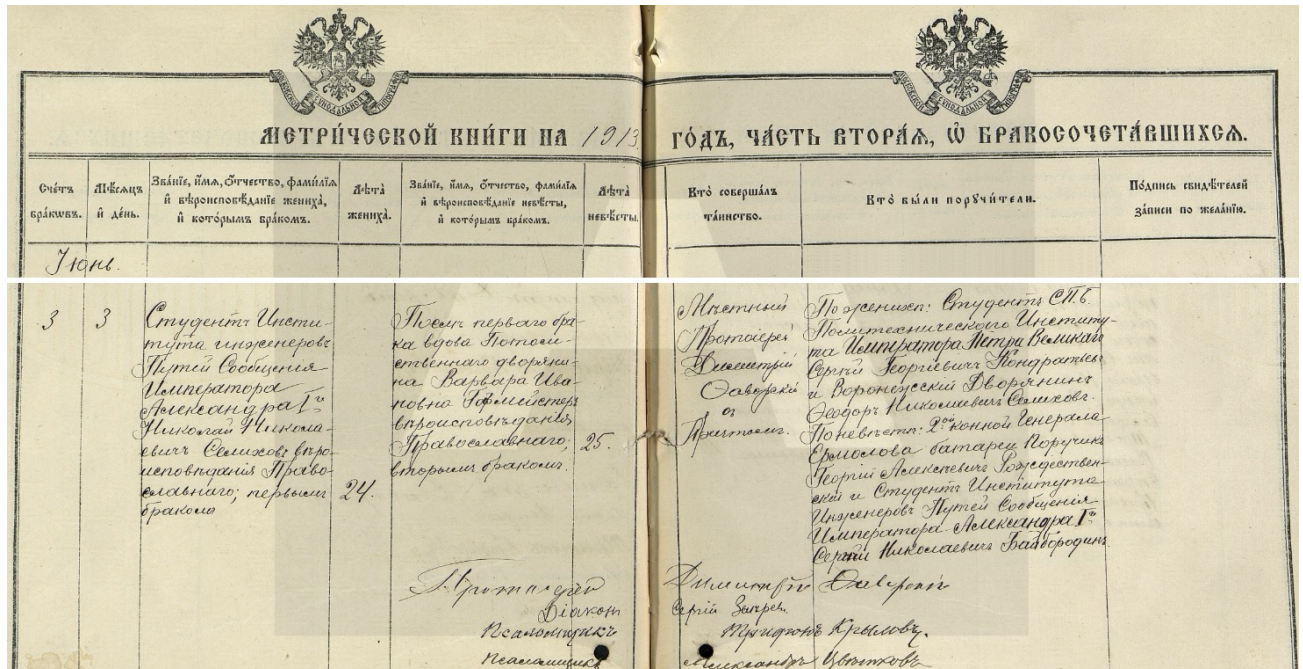 МЕТРИ́ЧЕСКОЙ КНИ́ГИ НА 1913 ГО́ДЪ, ЧА́СТЬ ВТОРА́Я, Ѽ БРАКОСОЧЕТА́ВШИХСЯ.
Сче́тъ
бра́кѡвъ.
Мѣ́сяцъ
и де́нь.
Зва́нїе, и́мя, о́тчество, фами́лїя
и вѣроисповѣ́данїе жениха̀,
и кото́рымъ бра́комъ.
Лѣ́та
жениха̀.
Зва́нїе, и́мя, о́тчество, фами́лїя
и вѣроисповѣ́данїе невѣ́сты,
и кото́рымъ бра́комъ.
Лѣ́та
невѣ́сты.
Кто̀ соверша́лъ
та́инство.
Кто̀ бы́ли поручи́тели.
По́дпись свидѣ́телей
за́писи по жела́нїю.
Іюнь.
3
3
Студентъ Инсти-
тута инженеровъ
Путей Сообщенія
Императора
Александра I го
Николай Никола-
евичъ Селиховъ вѣро-
исповѣданія Право-
славнаго; первымъ
бракомъ
24.
Послѣ перваго бра-
ка вдова Потом-
ственнаго дворяни-
на Варвара Ива-
новна Гофмейстеръ
вѣроисповѣданія
Православнаго,
вторымъ бракомъ.
25.
Мѣстный
Протоіерей
Димитрій
Ѳаворскій
съ
Причтомъ.
По женихѣ: Студентъ С.П.Б.
Политехническаго Институ-
та Императора Петра Великаго
Сергѣй Георгіевичъ Кондратьевъ
и Воронежскій Дворянинъ
Ѳеодоръ Николаевичъ Селиховъ.
По невѣстѣ: 2ой конной Генерала
Ермолова батареи Поручикъ
Георгій Алексѣевичъ Рождествен-
скій и Студентъ Института
Инженеровъ Путей Сообщенія
Императора Александра I го
Сергѣй Николаевичъ Байбородинъ.
Протоіерей Димитрій Ѳаворскій
Діаконъ Сергій
Псаломщикъ Трифонъ Крыловъ.
Псаломщикъ Александръ Цвѣтковъ